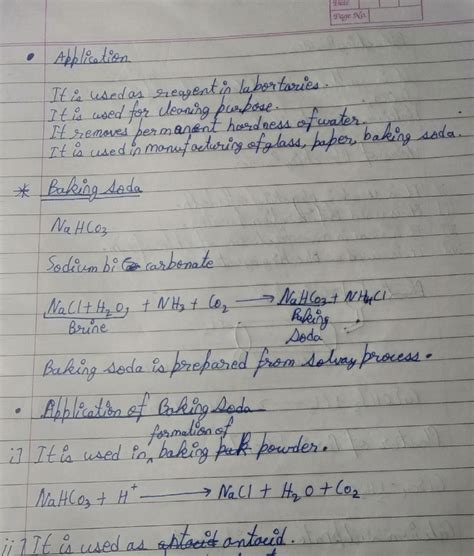 Page No.
• Application
It is used as reagent in labortaries.
It is used for cleaning purpose.
It removes permanent hardness of water.
It is used in manufacturing of glass, paper, baking soda.
* Baking soda
NaHCO3
Sodium bi carbonate
NaCl + H2O + NH3 + CO2 → NaHCO3 + NH4Cl
Brine Baking
soda
Baking soda is prepared from solvay process.
• Application of Baking Soda
formation of
i] It is used in ^ baking powder.
NaHCO3 + H+ → NaCl + H2O + CO2
ii] It is used as antacid.